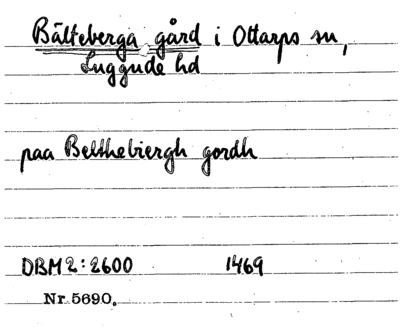 Bälteberga gård i Ottarps sn,
Luggude hd
paa Belthebiergh gordh
DBM 2:2600 1469
Nr 5690.